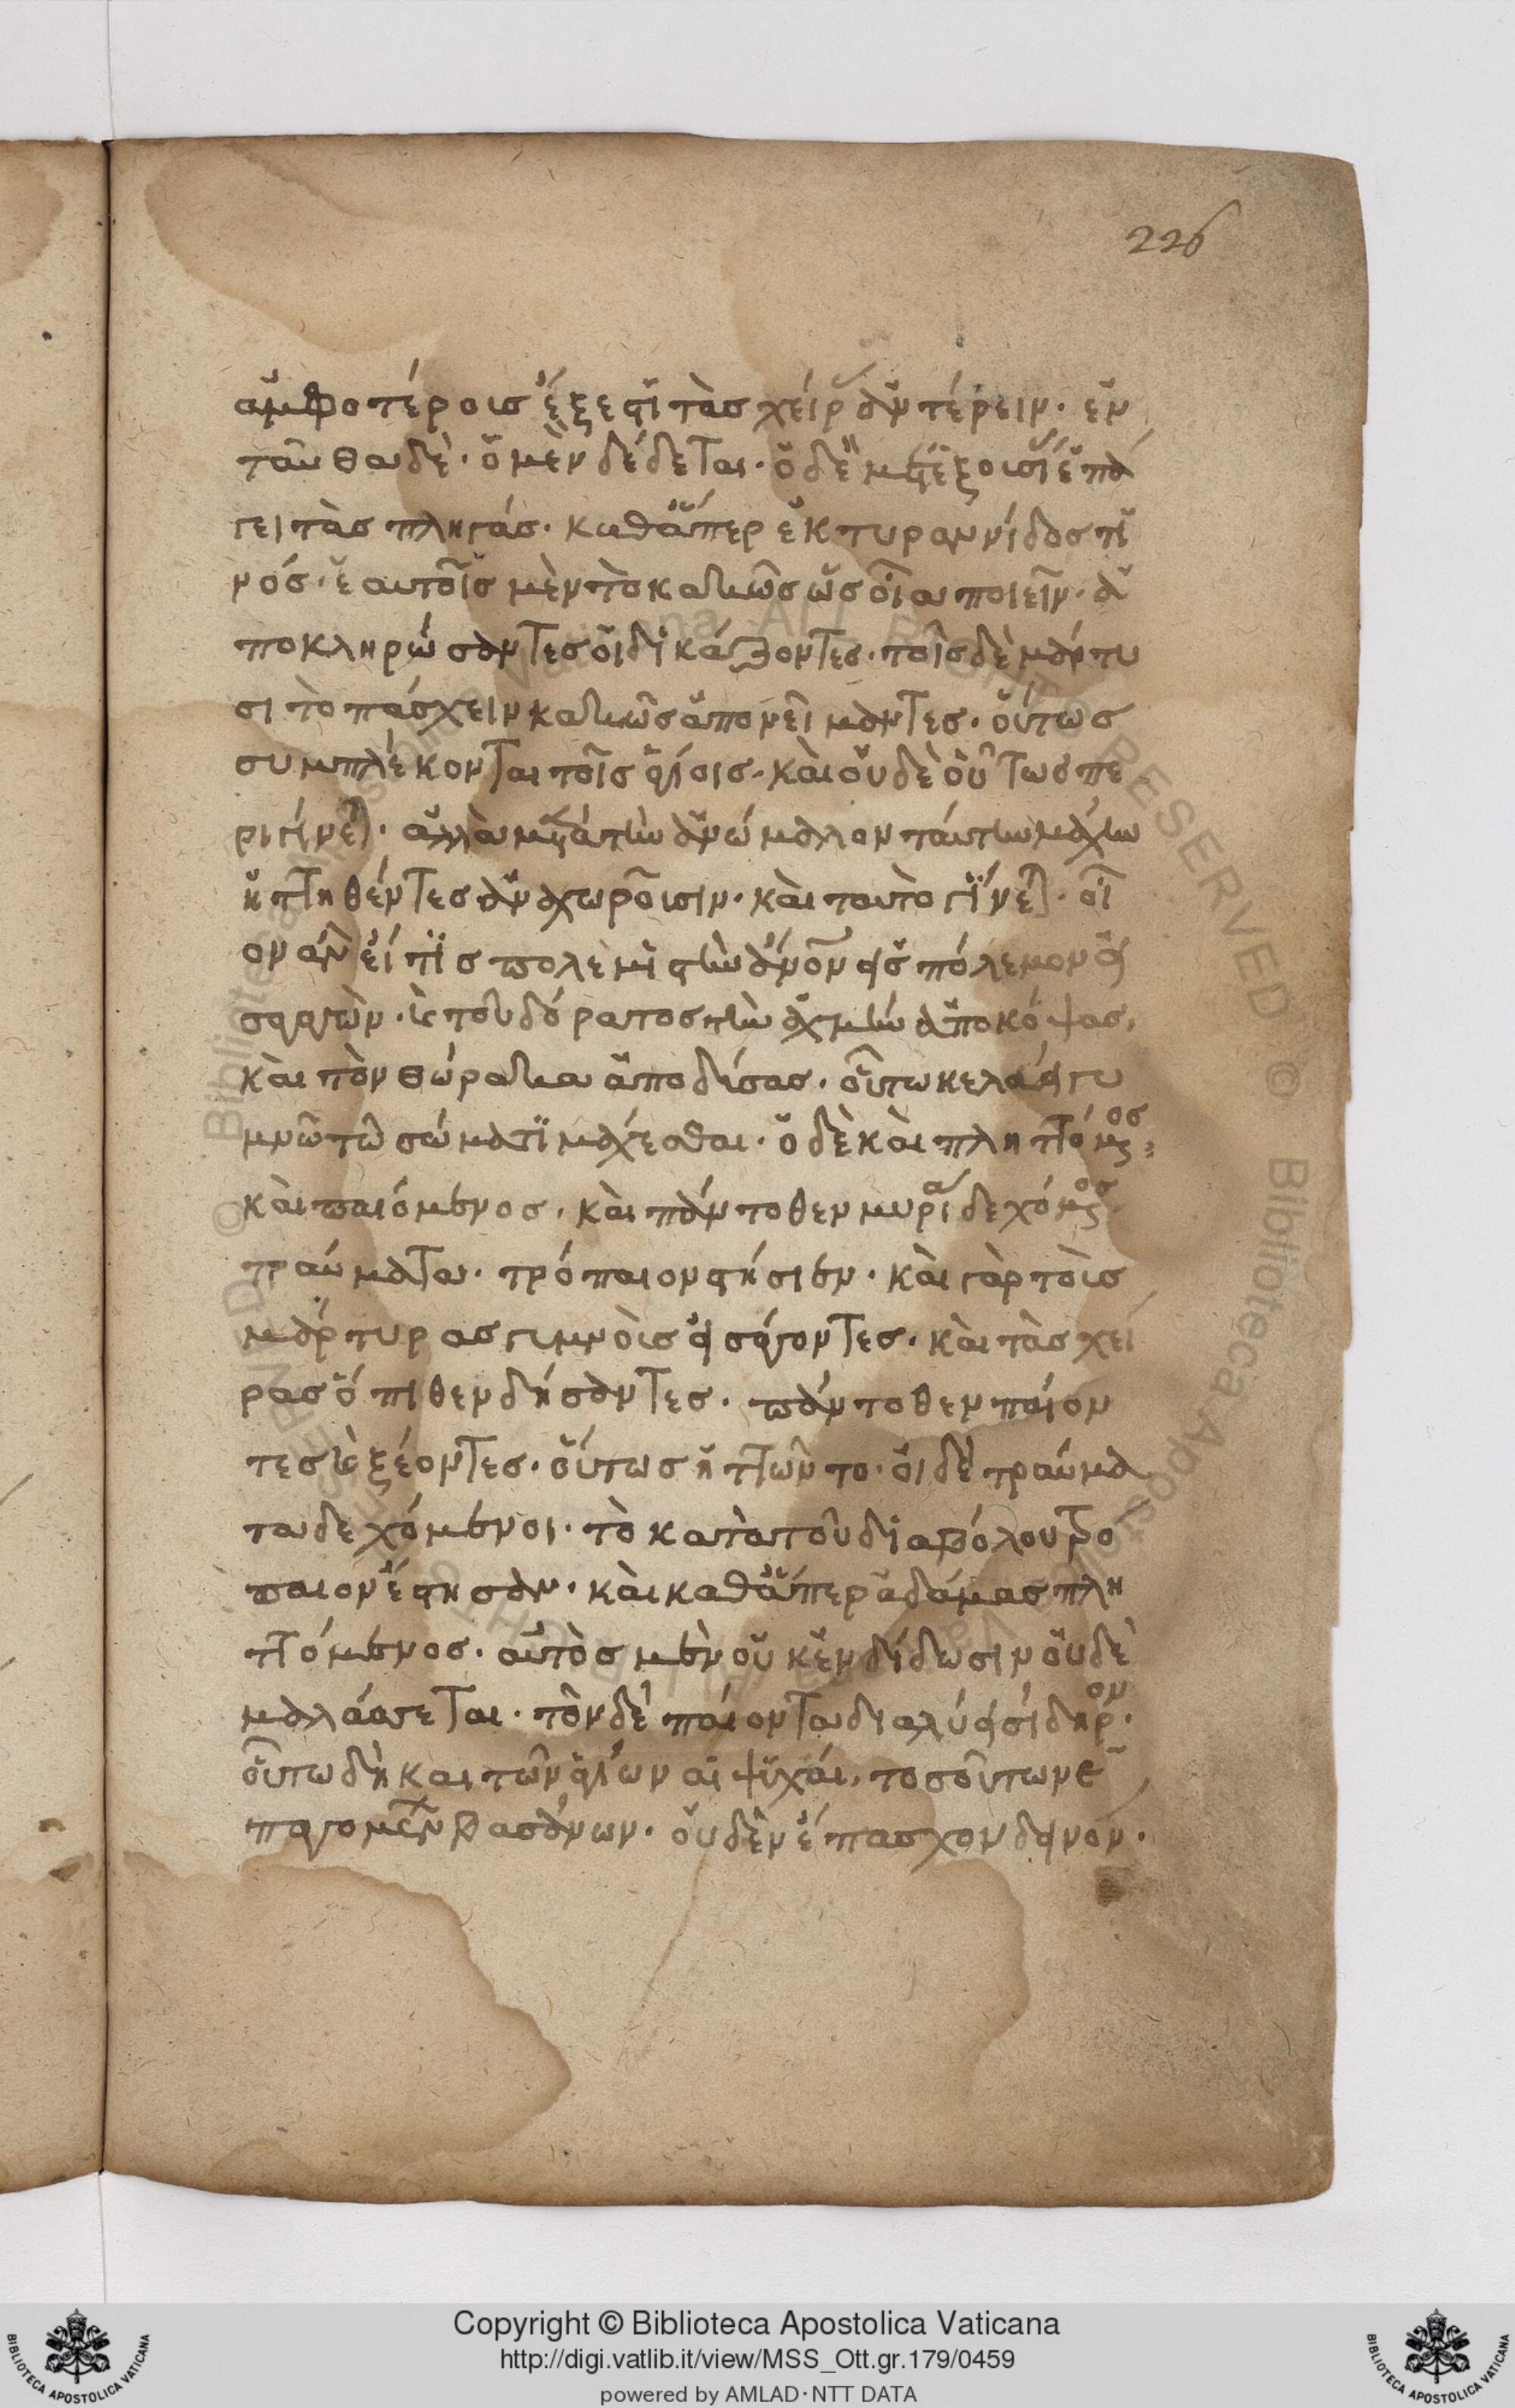 226
ἀμφοτέροις ἔξεστι τὰς χεῖρας ἀνταίρειν· ἐν
ταῦθα δὲ· ὁ μὲν δέδεται· ὁ δὲ μετ' ἐξουσίας ἐπά
γει τὰς πληγάς· καθάπερ ἐκ τυραννίδος τι
νός· ἑαυτοῖς μὲν τὸ κακῶς ποιεῖν· ἀ
ποκληρώσαντες οἱ δικάζοντες· τοῖς δὲ μάρτυ
σι τὸ πάσχειν κακῶς ἀπονείμαντες· οὕτως
συμπλέκονται τοῖς ἁγίοις· καὶ οὐδὲ οὕτως πε
ριγίνεται· ἀλλὰ μετὰ τὴν ἀνώμαλον ταύτην μάχην
ἡττηθέντες ἀναχωροῦσιν· καὶ ταυτὸ γίνεται· οἷ
ον ἂν εἴ τις πολεμιστὴν εἰς πόλεμον εἰ
σαγαγὼν· καὶ τοῦ δόρατος τὴν αἰχμὴν ἀποκόψας,
καὶ τὸν θώρακα ἀποδύσας· οὕτω κελεύει γυ
μνῷ τῷ σώματι μάχεσθαι· ὁ δὲ καὶ πληττόμενος·
καὶ παιόμενος, καὶ πάντοθεν μυρία δεχόμενος
τραύματα· τρόπαιον στήσειεν· καὶ γὰρ τοὺς
μάρτυρας γυμνοὺς εἰσάγοντες· καὶ τὰς χεῖ
ρας ὄπισθεν δήσαντες· πάντοθεν παίον
τες καὶ ξέοντες· οὕτως ἡττῶντο· οἱ δὲ τραύμα
τα δεχόμενοι· τὸ κατὰ τοῦ διαβόλου τρό
παιον ἔστησαν· καὶ καθάπερ ἀδάμας πλη
ττόμενος· αὐτὸς μὲν οὐκ ἐνδίδωσιν οὐδὲ
μαλάσσεται· τὸν δὲ παίοντα διαλύει σίδηρον·
οὕτω δὴ καὶ τῶν ἁγίων αἱ ψυχαί, τοσούτων ἐ
παγομένων βασάνων· οὐδὲν ἔπασχον δεινόν·
Copyright © Biblioteca Apostolica Vaticana
http://digi.vatlib.it/view/MSS_Ott.gr.179/0459
powered by AMLAD·NTT DATA